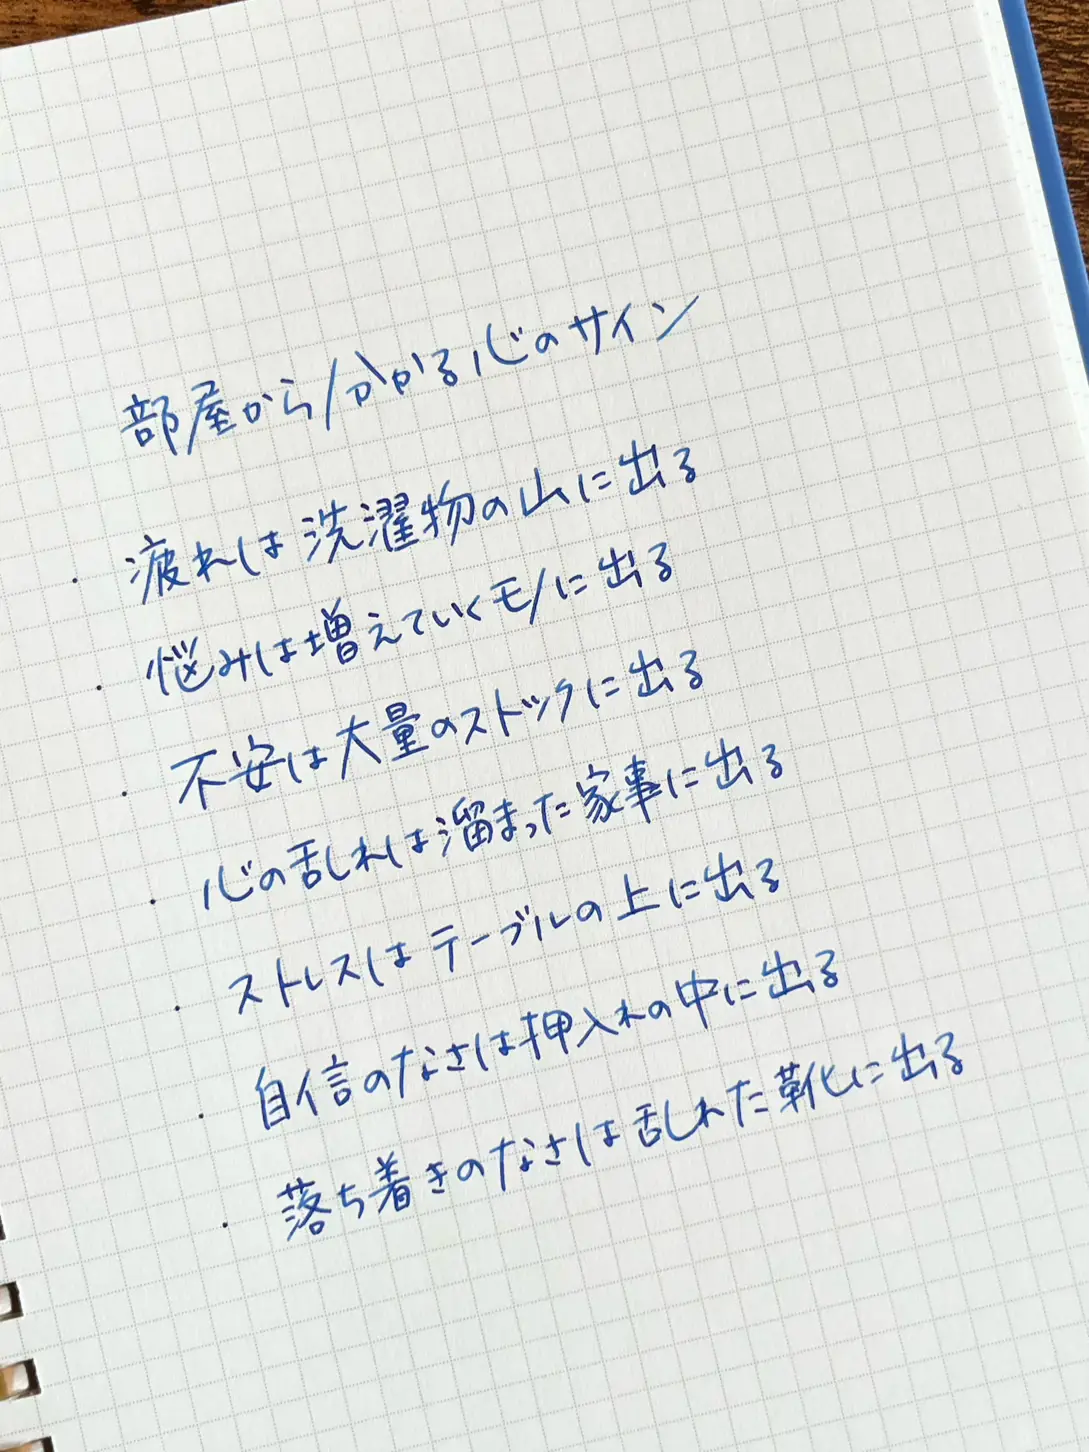 部屋から分かる心のサイン
・疲れは洗濯物の山に出る
・悩みは増えていくモノに出る
・不安は大量のストックに出る
・心の乱れは溜まった家事に出る
・ストレスはテーブルの上に出る
・自信のなさは押入れの中に出る
・落ち着きのなさは乱れた靴に出る